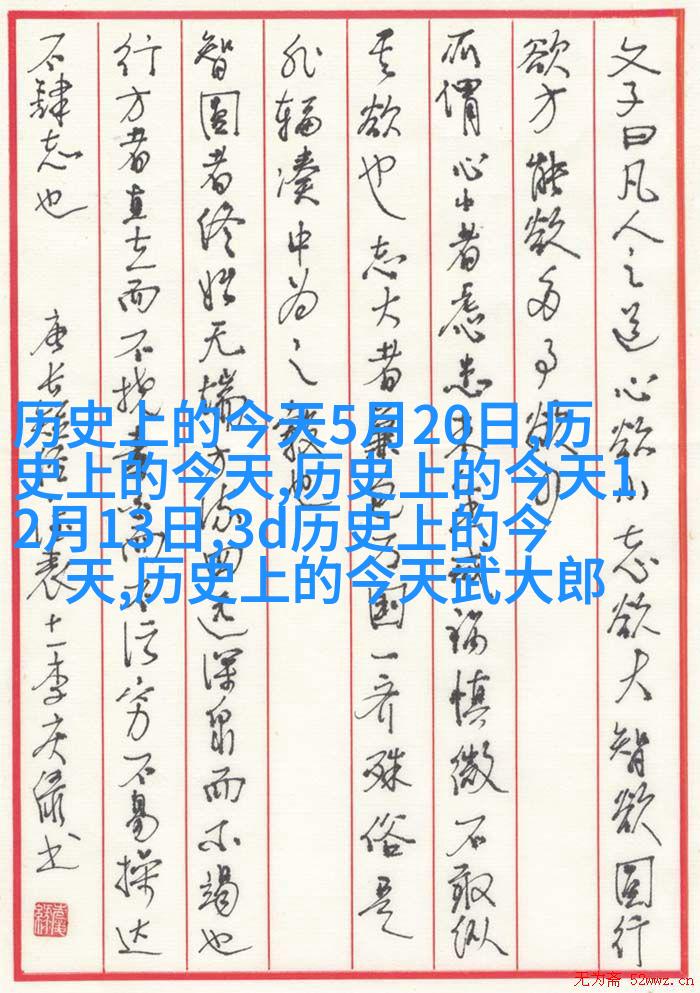 文子曰凡人之道心欲小志欲大智欲圆行
欲方能欲多事欲少
所谓心小者虑患未生戒祸慎微不敢纵
其欲也志大者兼包万国一齐殊俗是
非辐凑中为之毂也
智圆者终始无端方流四远深泉而不竭也
行方者直立而不挠素白而不污穷不易操达
不肆志也
历史上的今天5月20日,历
史上的今天,历史上的今天1
2月13日,3d历史上的今
天,历史上的今天武大郎
无为斋 52wwz.cn